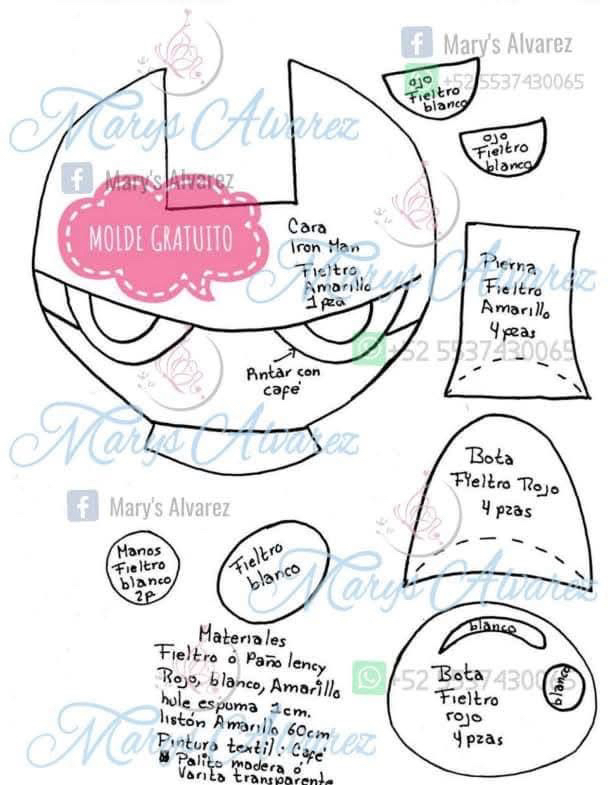 Mary's Alvarez
+52 5537430065
Marys Alvarez
Mary's Alvarez
MOLDE GRATUITO
ojo
Fieltro
blanco
ojo
Fieltro
blanco
Cara
Iron Man
Fieltro
Amarillo
1 pza
Marys Alvarez
Pierna
Fieltro
Amarillo
4 pzas
+52 5537430065
Pintar con
café
Marys Alvarez
Bota
Fieltro Rojo
4 pzas
Mary's Alvarez
Manos
Fieltro
blanco
2p
Fieltro
blanco
Marys Alvarez
blanco
Bota
Fieltro
rojo
4 pzas
blanco
+52 5537430065
Materiales
Fieltro o Paño lency
Rojo, blanco, Amarillo
hule espuma 1cm.
listón Amarillo 60cm
Pintura textil: Café
Palito madera ó
Varita transparente
Marys Alvarez